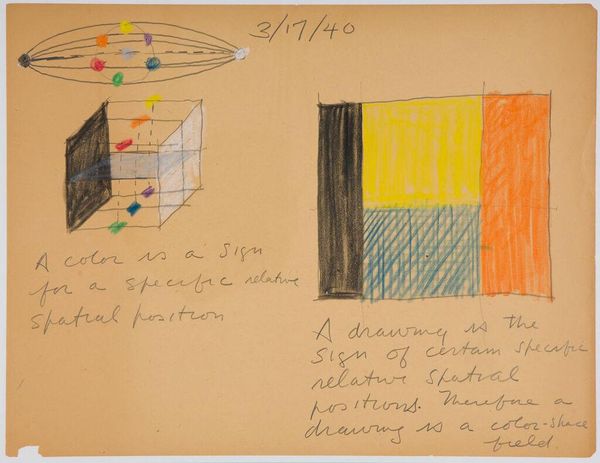 3/17/40
A color is a sign
for a specific relative
spatial position
A drawing is the
sign of certain specific
relative spatial
positions. Therefore a
drawing is a color-space
field.